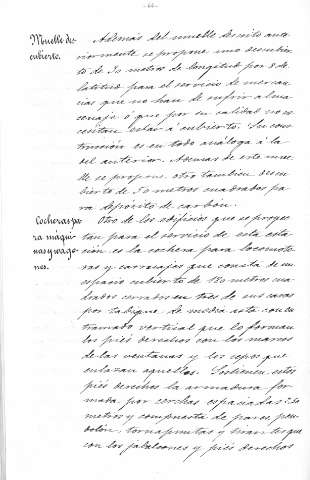 - 44 -
Muelle des-
cubierto.
Además del muelle descrito ante-
riormente se propone uno descubier-
to de 30 metros de longitud por 8 de
latitud para el servicio de mercan-
cias que no han de sufrir alma-
cenaje ó que por su calidad no ne-
cesitan estar á cubierto. Su cons-
trucción es en todo análoga á la
del anterior. Ademas de este mue-
lle se propone otro tambien descu-
bierto de 50 metros cuadrados pa-
ra depósito de carbón.
Cocheras pa-
ra máqui-
nas y vago-
nes.
Otro de los edificios que se proyec-
tan para el servicio de esta esta-
ción es la cochera para locomoto-
ras y carruajes que consta de un
espacio cubierto de 180 metros cua-
drados cerrados en tres de sus caras
por tabique de media asta con en-
tramado vertical que lo forman
los piés derechos con los marcos
de las ventanas y los cepos que
enlazan aquellos. Sostienen estos
piés derechos la armadura for-
mada por cerchas espaciadas
metros y compuesta de pares, pen-
dolón, tornapuntas y tirantes que
con los jabalcones y piés derechos